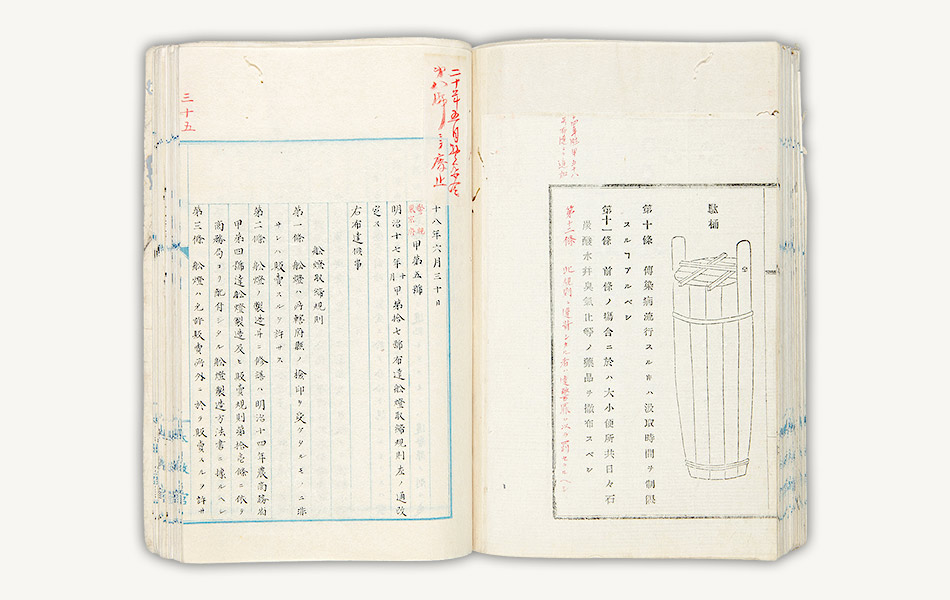 駄桶
第十條 傳染病流行スル𪜈ハ汲取時間ヲ制限
スルヿアルベシ
第十一條 前條ノ塲合ニ於ハ大小便所共日々石
炭酸水幷臭氣止等ノ藥品ヲ撒布スベシ
第十二條 此規則ニ違背シタル者ハ違警罪
二十年五月
廢止
三十五
十八年六月三十日
甲第五號
明治十七年 月甲第拾七號布達舩燈取締規則左ノ通改
定ス
右布達候事
舩燈取締規則
第一條 舩燈ハ府縣ノ檢印ヲ受タルモノニ非
サレハ販賣スルヲ許サス
第二條 舩燈ノ製造幷ニ修繕ハ明治十四年農商務省
甲第四號達舩燈製造及ヒ販賣規則第拾壱條ニ依リ
商務局ヨリ配付シタル舩燈製造方法書ニ據ルヘシ
第三條 舩燈ハ免許販賣所外ニ於テ販賣スルヲ許サ